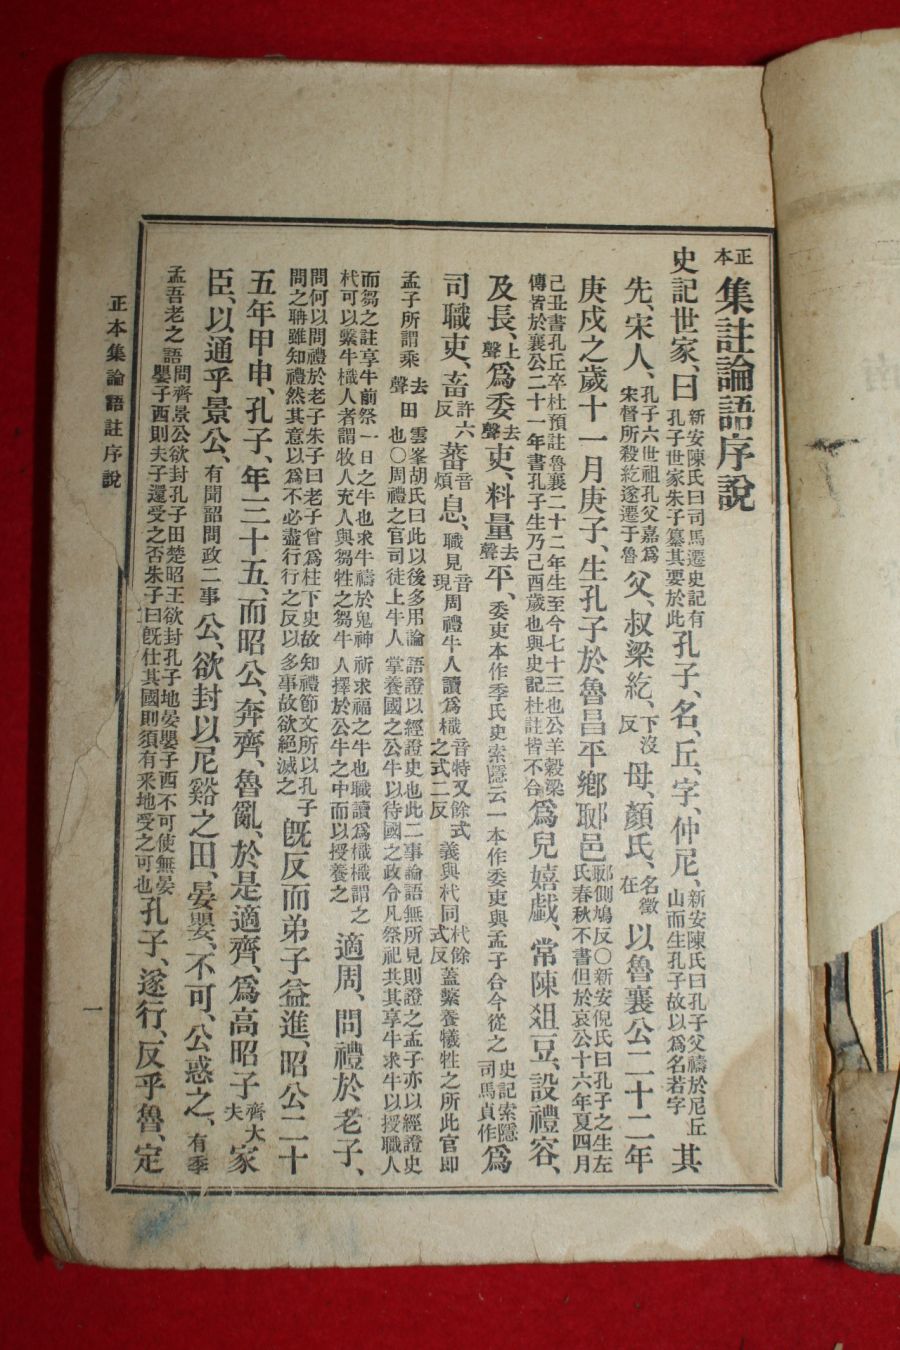 正本集註論語序說
史記世家、曰新安陳氏曰司馬遷史記有孔子世家朱子纂其要於此孔子、名、丘、字、仲尼、新安陳氏曰孔子父禱於尼丘山而生孔子故以爲名若字其
先、宋人、孔子六世祖孔父嘉爲宋督所殺紇遂遷于魯父、叔梁紇、下沒反母、顏氏、名徵在以魯襄公二十二年
庚戌之歲十一月庚子、生孔子於魯昌平鄕郰邑郰側鳩反〇新安倪氏曰孔子之生左氏春秋不書但於哀公十六年夏四月
己丑書孔丘卒杜預註魯襄二十二年生至今七十三也公羊穀梁傳皆於襄公二十一年書孔子生乃己酉歲也與史記杜註皆不合爲兒嬉戲、常陳俎豆、設禮容、
及長、上聲爲委去聲吏、料量去聲平、委吏本作季氏史索隱云一本作委吏與孟子合今從之史記索隱司馬貞作爲
司職吏、畜許六反蕃音煩息、職見音現周禮牛人讀爲樴音特又餘式之式二反義與杙同杙餘式反蓋繫養犧牲之所此官卽
孟子所謂乘去聲田雲峯胡氏曰此以後多用論語證以經證史也此二事論語無所見則證之孟子亦以經證史也〇周禮之官司徒上牛人掌養國之公牛以待國之政令凡祭祀共其享牛求牛以授職人
而芻之註享牛前祭一日之牛也求牛禱於鬼神祈求福之牛也職讀爲樴樴謂之杙可以繫牛樴人者謂牧人充人與芻牲之芻牛人擇於公牛之中而以授養之適周、問禮於老子、
問何以問禮於老子朱子曰老子曾爲柱下史故知禮節文所以孔子問之聃雖知禮然其意以爲不必盡行行之反以多事故欲絕滅之旣反而弟子益進、昭公二十
五年甲申、孔子、年三十五、而昭公、奔齊、魯亂、於是適齊、爲高昭子齊大夫家
臣、以通乎景公、有聞韶問政二事公、欲封以尼谿之田、晏嬰、不可、公惑之、有季
孟吾老之語問齊景公欲封孔子田楚昭王欲封孔子地晏嬰子西不可使無晏嬰子西則夫子還受之否朱子曰旣仕其國則須有采地受之可也孔子、遂行、反乎魯、定
正本集論語註序說
一